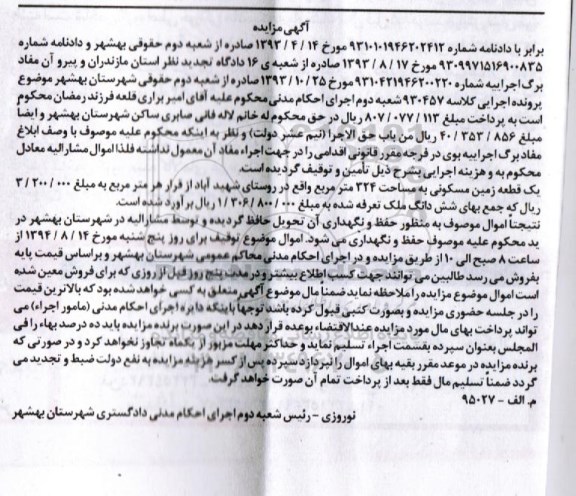 آگهی مزایده
برابر با دادنامه شماره ۹۳۱۰۱۰۱۹۴۶۲۰۲۴۱۲ مورخ ۱۴ / ۴ / ۱۳۹۳ صادره از شعبه دوم حقوقی بهشهر و دادنامه شماره
۹۳۰۹۹۷۱۵۱۶۹۰۰۸۳۵ مورخ ۱۷ / ۸ / ۱۳۹۳ صادره از شعبه ی ۱۶ دادگاه تجدید نظر استان مازندران و پیرو آن مفاد
برگ اجراییه شماره ۹۳۱۰۴۲۱۹۴۶۲۰۰۲۲۰ مورخ ۲۵ / ۱۰ / ۱۳۹۳ صادره از شعبه دوم حقوقی شهرستان بهشهر موضوع
پرونده اجرایی کلاسه ۹۳۰۴۵۷ شعبه دوم اجرای احکام مدنی محکوم علیه آقای امیر براری قلعه فرزند رمضان محکوم
است به پرداخت مبلغ ۱۱۳ / ۰۷۷ / ۸۰۷ ریال در حق محکوم له خانم لاله فانی صابری ساکن شهرستان بهشهر و ایضاً
مبلغ ۸۵۶ / ۳۵۳ / ۴۰ ریال من باب حق الاجرا (نیم عشر دولت) و نظر به اینکه محکوم علیه موصوف با وصف ابلاغ
مفاد برگ اجراییه بوی در فرجه مقرر قانونی اقدامی را در جهت اجراء مفاد آن معمول نداشته فلذا اموال مشارالیه معادل
محکوم به و هزینه اجرایی بشرح ذیل تأمین و توقیف گردیده است.
یک قطعه زمین مسکونی به مساحت ۳۲۴ متر مربع واقع در روستای شهید آباد از قرار هر متر مربع به مبلغ ۰۰۰ / ۲۰۰ / ۳
ریال که جمع بهای شش دانگ ملک تعرفه شده به مبلغ ۰۰۰ / ۸۰۰ / ۳۰۶ / ۱ ریال برآورد شده است.
نتیجتاً اموال موصوف به منظور حفظ و نگهداری آن تحویل حافظ گردیده و توسط مشارالیه در شهرستان بهشهر در
ید محکوم علیه موصوف حفظ و نگهداری می شود. اموال موضوع توقیف برای روز پنج شنبه مورخ ۱۴ / ۸ / ۱۳۹۴ از
ساعت ۸ صبح الی ۱۰ از طریق مزایده و در اجرای احکام مدنی محاکم عمومی شهرستان بهشهر و براساس قیمت پایه
بفروش می رسد طالبین می توانند جهت کسب اطلاع بیشتر و در مدت پنج روز قبل از روزی که برای فروش معین شده
است اموال موضوع مزایده را ملاحظه نماید ضمناً مال موضوع آگهی متعلق به کسی خواهد شد بود که بالاترین قیمت
را در جلسه حضوری مزایده و بصورت کتبی قبول کرده باشد توجهاً باینکه دایره اجرای احکام مدنی (مامور اجراء) می
تواند پرداخت بهای مال مورد مزایده عندالاقتضاء بوعده قرار دهد در این صورت برنده مزایده باید ده درصد بهاء را فی
المجلس بعنوان سپرده بقسمت اجراء تسلیم نماید و حداکثر مهلت مزبور از یکماه تجاوز نخواهد کرد و در صورتی که
برنده مزایده در موعد مقرر بقیه بهای اموال را نپردازد سپرده پس از کسر هزینه مزایده به نفع دولت ضبط و تجدید می
گردد ضمناً تسلیم مال فقط بعد از پرداخت تمام آن صورت خواهد گرفت.
م. الف - ۹۵۰۲۷
نوروزی - رئیس شعبه دوم اجرای احکام مدنی دادگستری شهرستان بهشهر